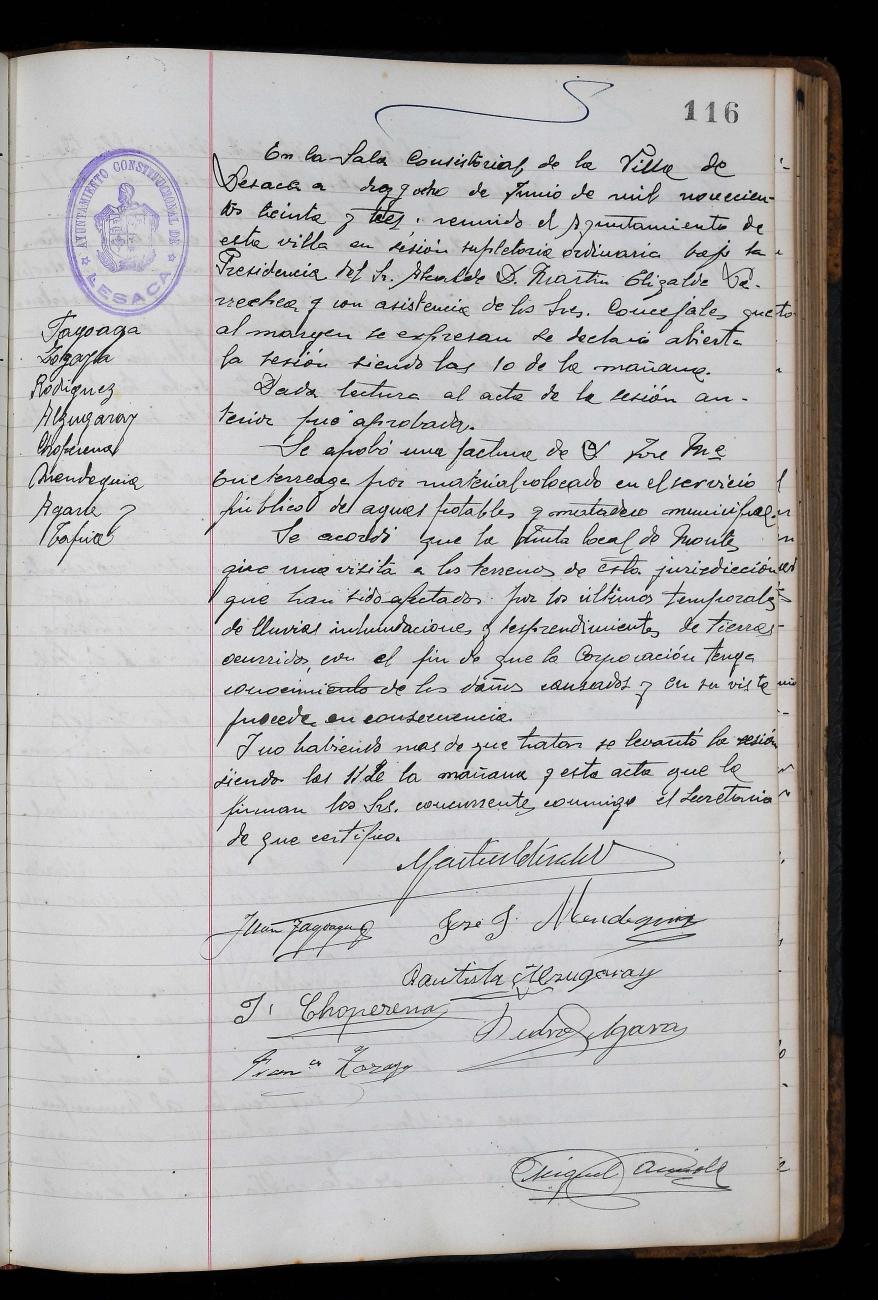 116
AYUNTAMIENTO CONSTITUCIONAL DE
LESACA
Tayoaga
Zozaya
Rodriguez
Alzugaray
Choperena
Mendeguia
Agara y
Tapia
En la Sala Consistorial de la Villa de
Lesaca a diez y ocho de Junio de mil novecien-
tos treinta y tres: reunido el Ayuntamiento de
esta villa en sesión supletoria ordinaria bajo la
Presidencia del Sr. Alcalde D. Martin Elizalde
y con asistencia de los Sres. Concejales que
al margen se expresan se declaró abierta
la sesión siendo las 10 de la mañana.
Dada lectura al acta de la sesión an-
terior fué aprobada.
Se aprobó una factura de D. Jose Mª
por material colocado en el servicio
público de aguas potables y matadero municipal.
Se acordó que la Junta local de Montes
gire una visita a los terrenos de esta jurisdicción
que han sido afectados por los últimos temporales
de lluvias inhundaciones y desprendimientos de tierras
ocurridos, con el fin de que la Corporación tenga
conocimiento de los daños causados y en su vista
proceda en consecuencia.
Y no habiendo mas de que tratar se levantó la sesión
siendo las 11 de la mañana y esta acta que la
firman los Srs. concurrentes conmigo el Secretario
de que certifico.
Martin Elizalde
Juan Tayoaga
Jose J. Mendeguia
Bautista Alzugaray
J. Choperena
Pedro Agara
Franco Zozaya
Miguel